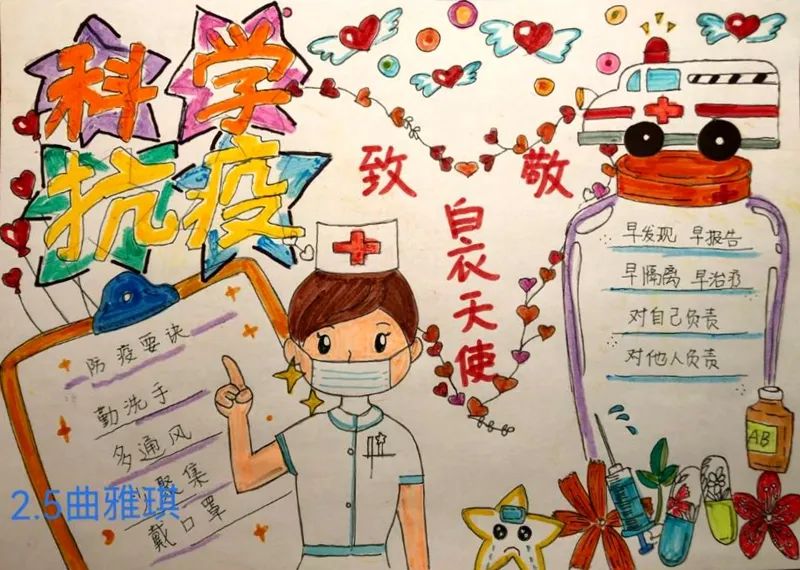 科学
抗疫
致敬
白衣天使
早发现 早报告
早隔离 早治疗
对自己负责
对他人负责
防疫要诀
勤洗手
多通风
聚集
戴口罩
2.5曲雅琪
AB